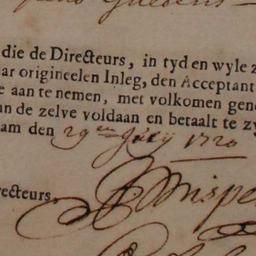 die de Directeurs, in tyd en wyle z
ar origineelen Inleg, den Acceptant
e aan te nemen, met volkomen gen
an de zelve voldaan en betaalt te zy
am den 29en July 1720
recteurs,